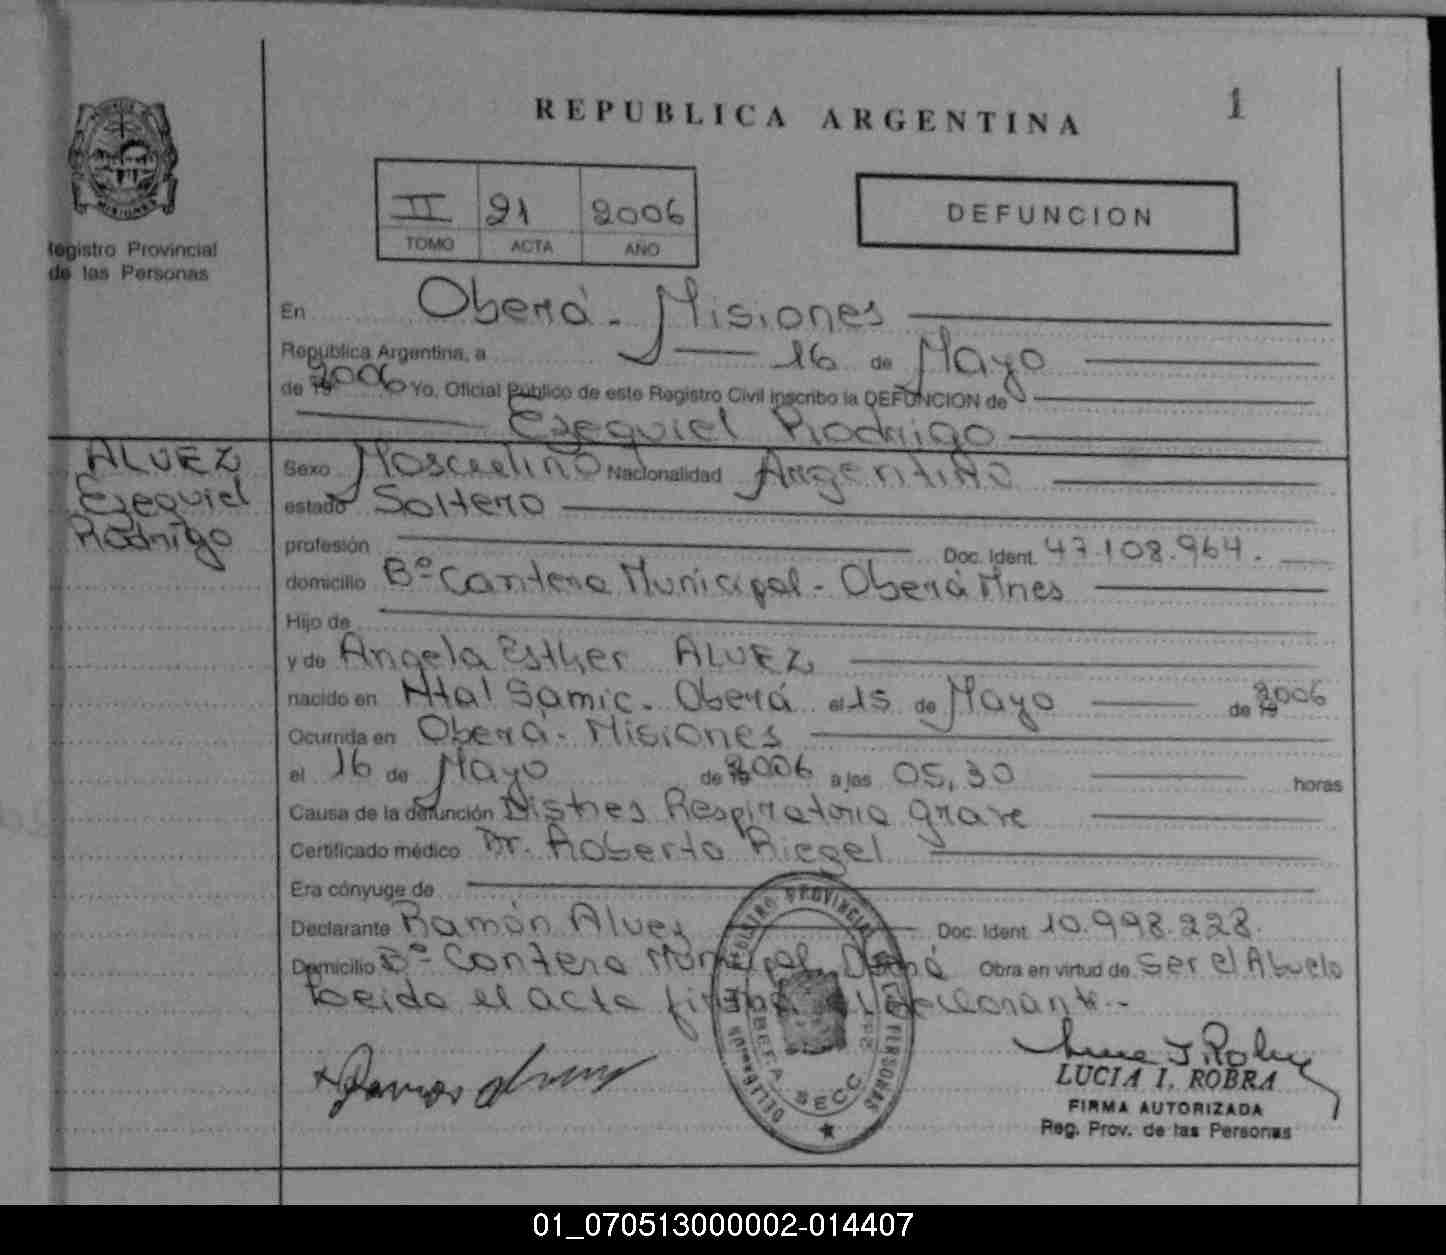 REPUBLICA ARGENTINA
1
II 21 2006
TOMO ACTA AÑO
DEFUNCION
MISIONES
Registro Provincial
de las Personas
En Oberá - Misiones
Republica Argentina, a 16 de Mayo
de 2006 Yo, Oficial Público de este Registro Civil inscribo la DEFUNCION de
Ezequiel Rodrigo
ALVEZ
Ezequiel
Rodrigo
Sexo Masculino Nacionalidad Argentino
estado Soltero
profesión Doc. Ident. 47.108.964.
domicilio Bº Cantera Municipal - Oberá Mnes
Hijo de
y de Angela Esther ALVEZ
nacido en Htal Samic - Oberá el 15 de Mayo de 2006
Ocurrida en Oberá - Misiones
el 16 de Mayo de 2006 a las 05,30 horas
Causa de la defunción Distres Respiratorio grave
Certificado médico Dr. Roberto Riegel
Era cónyuge de
Declarante Ramón Alvez Doc. Ident 10.998.228.
Domicilio Bº Cantera Municipal Oberá Obra en virtud de Ser el Abuelo
Leida el acta firma el declarante.-
REGISTRO PROVINCIAL DE LAS PERSONAS
SECC
LUCIA I. ROBRA
FIRMA AUTORIZADA
Reg. Prov. de las Personas
01_070513000002-014407